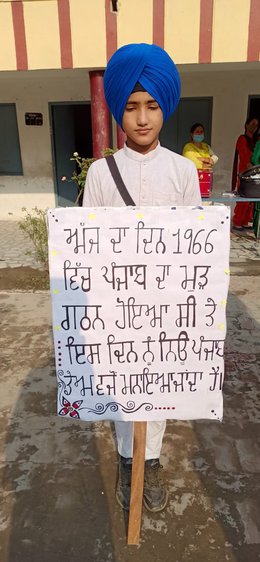 ਅੱਜ ਦਾ ਦਿਨ 1966
ਵਿੱਚ ਪੰਜਾਬ ਦਾ ਮੁੜ
ਗਠਨ ਹੋਇਆ ਸੀ ਤੇ
ਇਸ ਦਿਨ ਨੂੰ ਨਿਊ ਪੰਜਾਬ
ਡੇਅ ਵਜੋਂ ਮਨਾਇਆ ਜਾਂਦਾ ਹੈ।